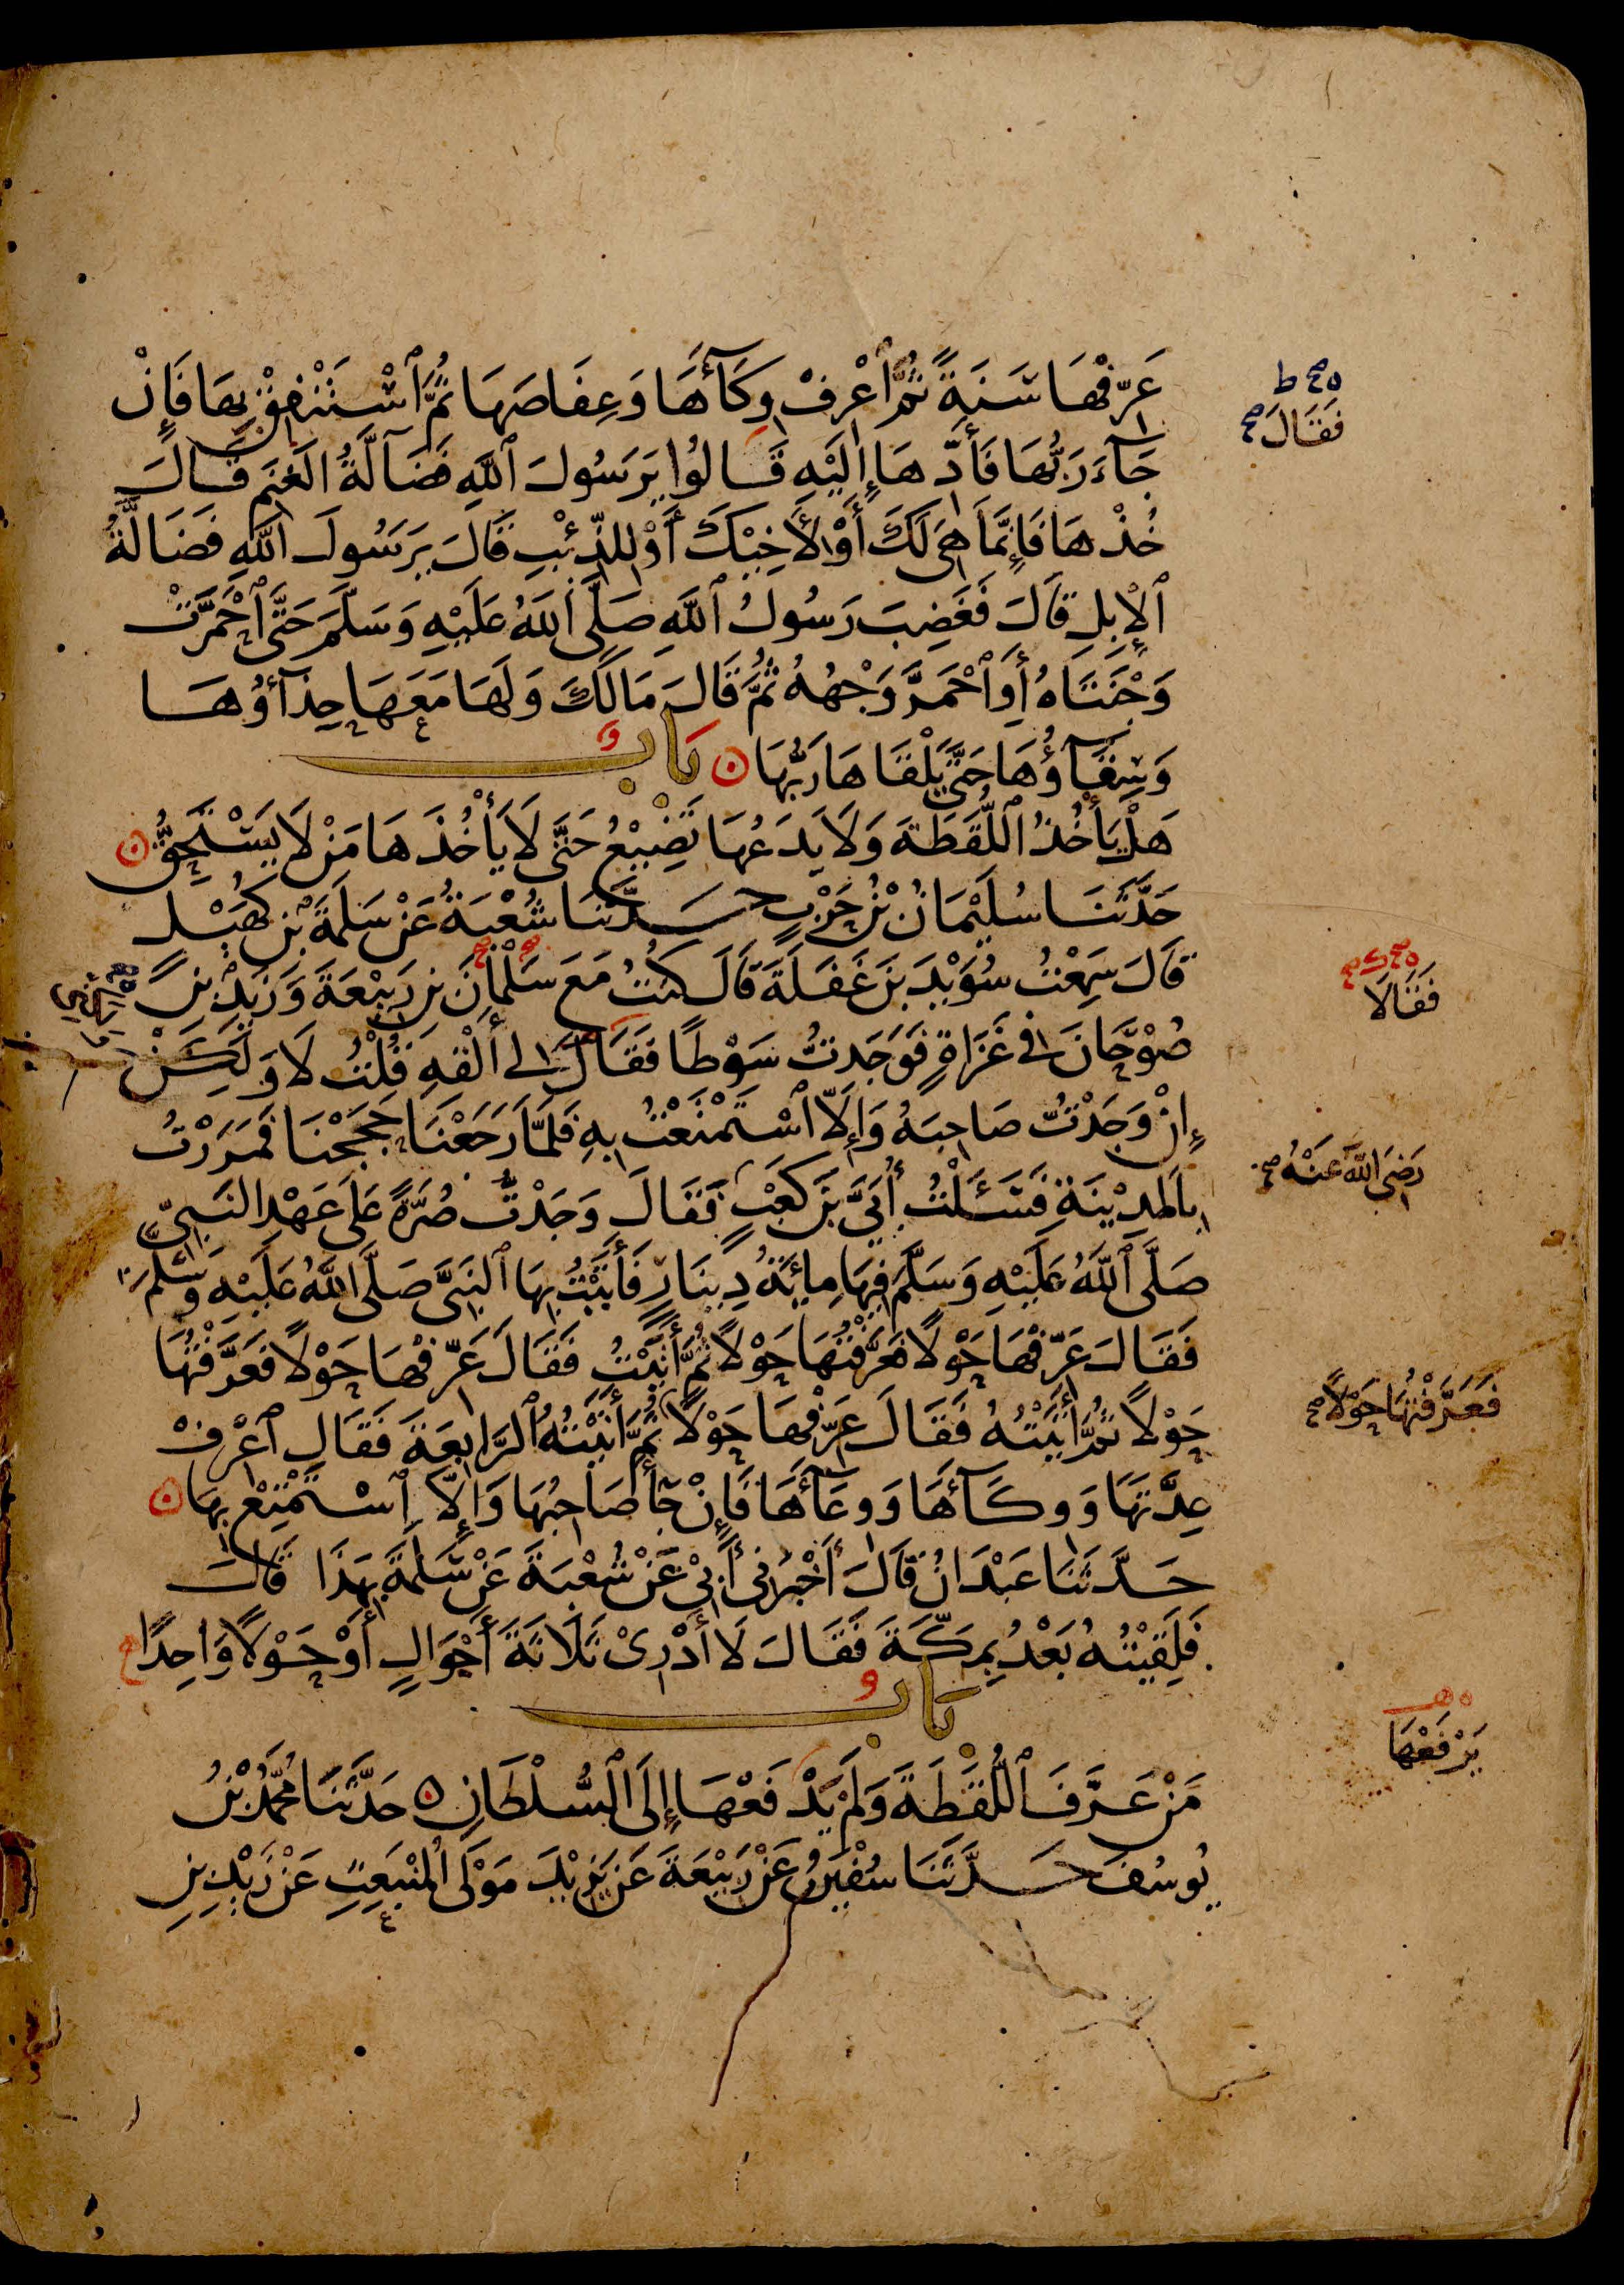 عَرِّفْهَا سَنَةً ثُمَّ ٱعْرِفْ وِكَآءَهَا وَعِفَاصَهَا ثُمَّ ٱسْتَنْفِقْ بِهَا فَإِنْ
فَقَالَ
جَآءَ رَبُّهَا فَأَدِّهَا إِلَيْهِ قَالُوا يَرَسُولَ ٱللَّهِ فَضَآلَّةُ الْغَنَمِ قَالَ
خُذْهَا فَإِنَّمَا هِىَ لَكَ أَوْ لِأَخِيْكَ أَوْ لِلذِّئْبِ قَالَ يَرَسُولَ اللَّهِ فَضَالَّةُ
ٱلْإِبِلِ قَالَ فَغَضِبَ رَسُولُ ٱللَّهِ صَلَّى ٱللَّهُ عَلَيْهِ وَسَلَّمَ حَتَّى ٱحْمَرَّتْ
وَجْنَتَاهُ أَوِ ٱحْمَرَّ وَجْهُهُ ثُمَّ قَالَ مَا لَكَ وَلَهَا مَعَهَا حِذَآؤُهَا
وَسِقَآؤُهَا حَتَّى يَلْقَاهَا رَبُّهَا بَابٌ
هَلْ يَأْخُذُ اللُّقَطَةَ وَلَا يَدَعُهَا تَضِيْعُ حَتَّى لَا يَأْخُذَهَا مَنْ لَا يَسْتَحِقُّ
حَدَّثَنَا سُلَيْمَانُ بْنُ حَرْبٍ حَدَّثَنَا شُعْبَةُ عَنْ سَلَمَةَ بْنِ كُهَيْلٍ
قَالَ سَمِعْتُ سُوَيْدَ بْنَ غَفَلَةَ قَالَ كُنْتُ مَعَ سَلْمَانَ بْنِ رَبِيْعَةَ وَزَيْدِ بْنِ
صُوْحَانَ فِى غَزَاةٍ فَوَجَدتُّ سَوْطًا فَقَالَ لِى أَلْقِهِ قُلْتُ لَا وَلَكِنْ
فَقَالَا
إِنْ وَجَدْتُّ صَاحِبَهُ وَإِلَّا ٱسْتَمْتَعْتُ بِهِ فَلَمَّا رَجَعْنَا حَجَجْنَا فَمَرَرْتُ
بِالْمَدِيْنَةِ فَسَئَلْتُ أُبَىَّ بْنَ كَعْبٍ فَقَالَ وَجَدْتُّ صُرَّةً عَلَى عَهْدِ النَّبِىِّ
رَضِىَ اللَّهُ عَنْهُ
صَلَّى ٱللَّهُ عَلَيْهِ وَسَلَّمَ فِيْهَا مِائَةُ دِيْنَارٍ فَأَتَيْتُ بِهَا ٱلنَّبِىَّ صَلَّى اللَّهُ عَلَيْهِ وَسَلَّمَ
فَقَالَ عَرِّفْهَا حَوْلًا فَعَرَّفْتُهَا حَوْلًا ثُمَّ أَتَيْتُ فَقَالَ عَرِّفْهَا حَوْلًا فَعَرَّفْتُهَا
حَوْلًا ثُمَّ أَتَيْتُهُ فَقَالَ عَرِّفْهَا حَوْلًا ثُمَّ أَتَيْتُهُ ٱلرَّابِعَةَ فَقَالَ ٱعْرِفْ
فَعَرَّفْتُهَا حَوْلًا
عِدَّتَهَا وَوِكَآءَهَا وَوِعَآءَهَا فَإِنْ جَآءَ صَاحِبُهَا وَإِلَّا ٱسْتَمْتِعْ بِهَا
حَدَّثَنَا عَبْدَانُ قَالَ أَخْبَرَنِى أَبِىْ عَنْ شُعْبَةَ عَنْ سَلَمَةَ بِهَذَا قَالَ
فَلَقِيْتُهُ بَعْدُ بِمَكَّةَ فَقَالَ لَا أَدْرِىْ ثَلَاثَةَ أَحْوَالٍ أَوْ حَوْلًا وَاحِدًا
بَابُ
مَنْ عَرَّفَ ٱللُّقَطَةَ وَلَمْ يَدْفَعْهَا إِلَى ٱلسُّلْطَانِ حَدَّثَنَا مُحَمَّدُ بْنُ
يَرْفَعْهَا
يُوسُفَ حَدَّثَنَا سُفْيَنُ عَنْ رَبِيْعَةَ عَنْ يَزِيْدَ مَوْلَى الْمُنْبَعِثِ عَنْ زَيْدِ بْنِ